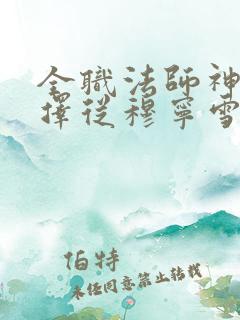 全職法師神
擇從穆寧雪
伯特
未经同意禁止转载